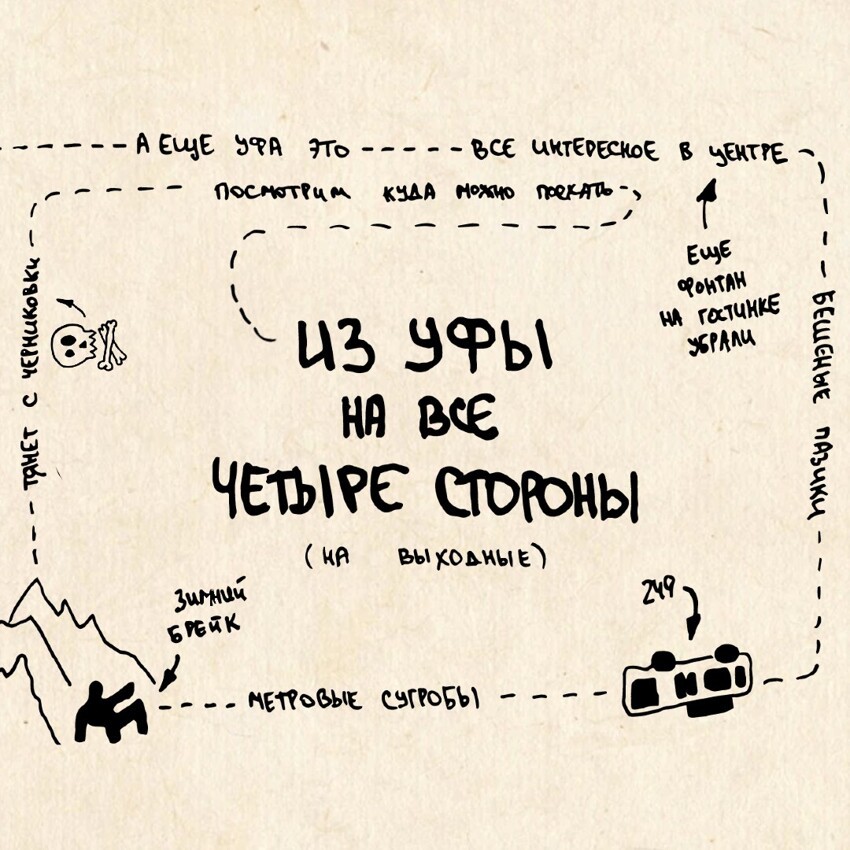 А ЕЩЕ УФА ЭТО
ВСЕ ИНТЕРЕСНОЕ В ЦЕНТРЕ
ЕЩЕ
ФОНТАН
НА ГОСТИНКЕ
УБРАЛИ
БЕШЕНЫЕ ПАЗИКИ
249
МЕТРОВЫЕ СУГРОБЫ
ЗИМНИЙ
БРЕЙК
ТЯНЕТ С ЧЕРНИКОВКИ
ПОСМОТРИМ КУДА МОЖНО ПОЕХАТЬ
ИЗ УФЫ
НА ВСЕ
ЧЕТЫРЕ СТОРОНЫ
(НА ВЫХОДНЫЕ)